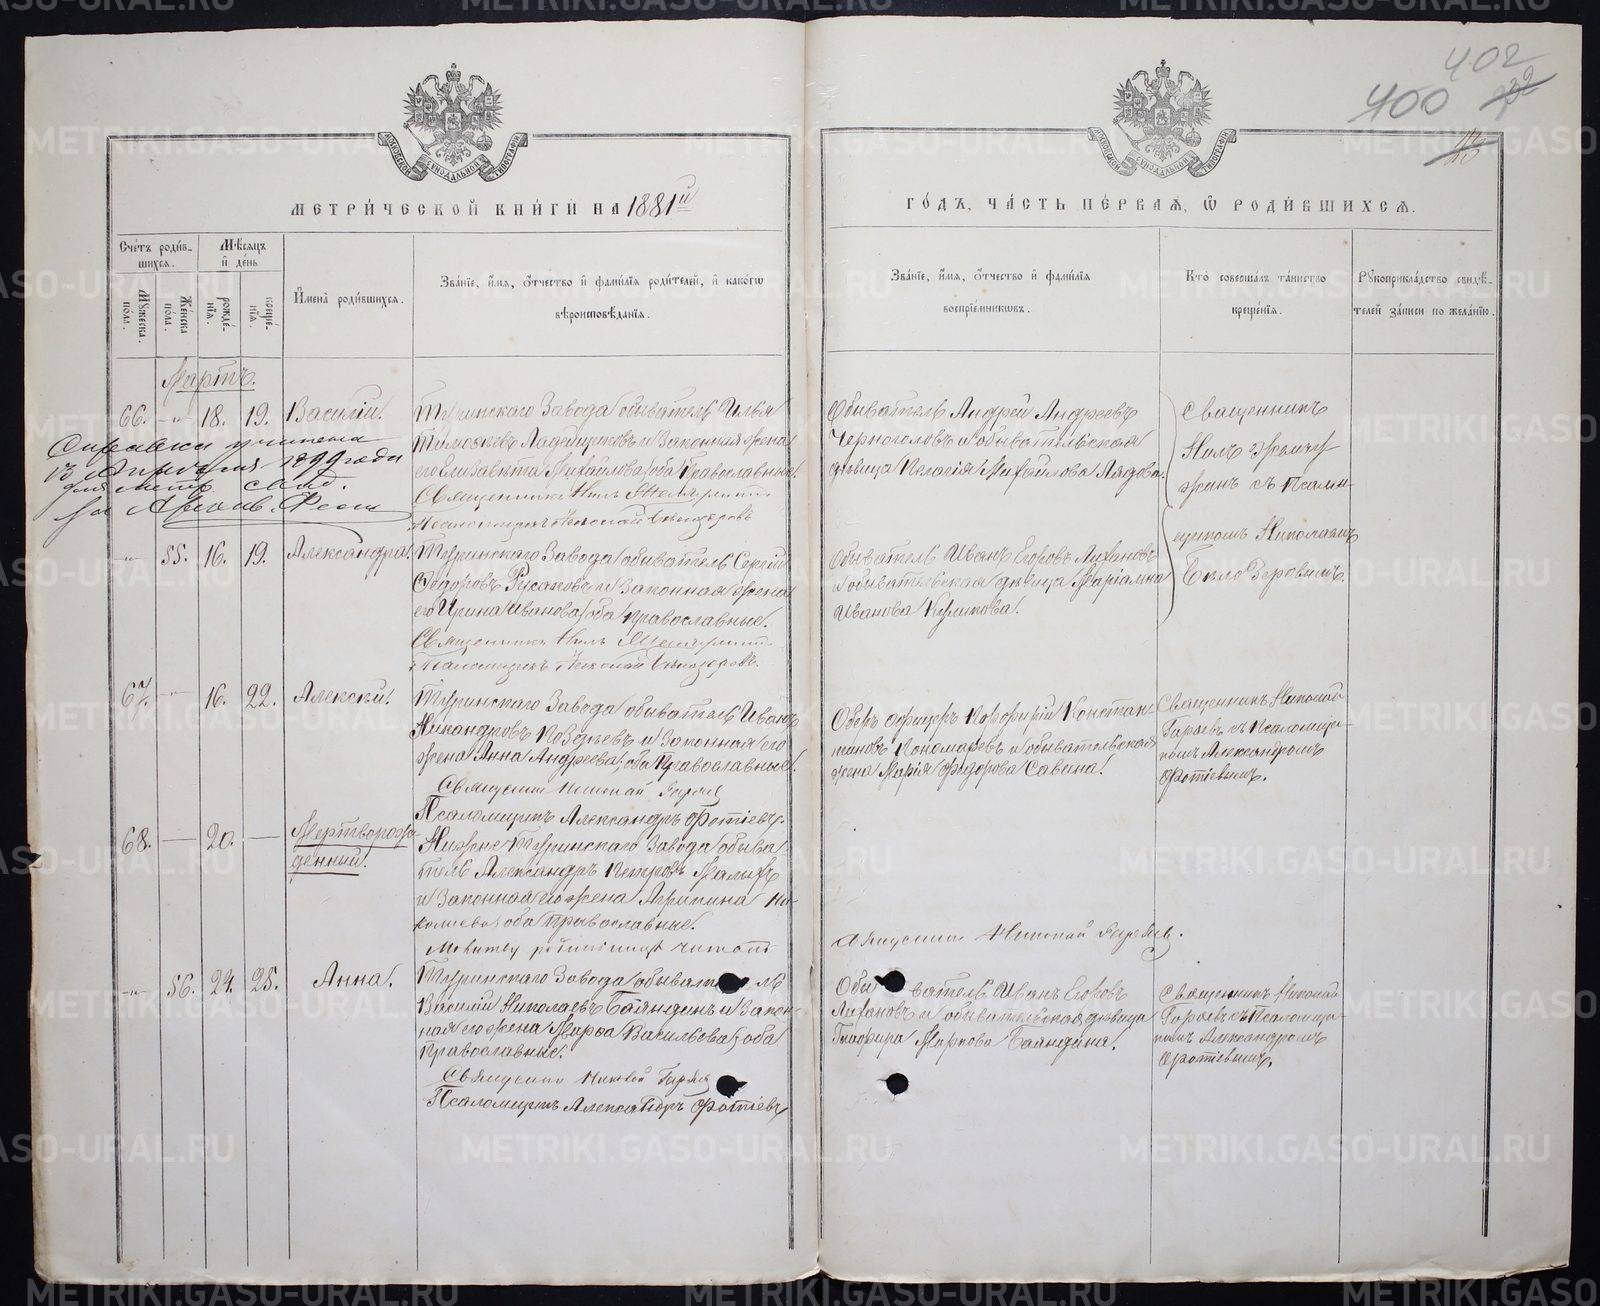 402
400
232
МЕТРИЧЕСКОЙ КНИГИ НА 1881й
ГОДЪ, ЧАСТЬ ПЕРВАЯ, Ѡ РОДИВШИХСЯ.
МОСКОВСКОЙ СѴНОДАЛЬНОЙ ТИПОГРАФІИ
Счетъ родив-
шихся.
Мѣсяцъ
и день
Мужеска пола.
Женска пола.
рожде-
нія.
креще-
нія.
Имена родившихся.
Званіе, имя, отчество и фамилія родителей, и какогѡ
вѣроисповѣданія.
Званіе, имя, отчество и фамилія
воспріемниковъ.
Кто совершалъ таинство
крещенія.
Рукоприкладство свидѣ-
телей записи по желанію.
Мартъ.
66. -"- 18. 19. Василій.
Туринскаго Завода обыватель Илья
Тимоѳеевъ и Законная жена
его Елизавета Михайлова, оба Православные.
Священникъ Нилъ
Псаломщикъ Николай Бѣлозеровъ
Обыватель Андрей Андреевъ
Черноголовъ и обывательская
дѣвица Пелагія Михайлова
Священникъ
Нилъ
съ Псалом-
щикомъ Николаемъ
Бѣлозеровымъ.
Справка учинена
13 1899 года
для метр. свид.
-"- 55. 16. 19. Александра.
Туринскаго Завода обыватель Сергій
Ѳедоровъ Русаковъ и Законная жена
его Ирина Иванова, оба Православные.
Священникъ Нилъ
Псаломщикъ Николай Бѣлозеровъ.
Обыватель Иванъ Егоровъ Лихановъ
и обывательская дѣвица Маріамна
Иванова Куликова.
67. -"- 16. 22. Алексѣй.
Туринскаго Завода обыватель Иванъ
Никандровъ и Законная его
жена Анна Андреева, оба Православные.
Священникъ Николай Гаряевъ
Псаломщикъ Александръ Фотіевъ.
Оберъ офицеръ Порфирій Констан-
тиновъ Пономаревъ и обывательская
жена Марія Ѳедорова Савина.
Священникъ Николай
Гаряевъ съ Псаломщи-
комъ Александромъ
Фотіевымъ.
68. — 20. — Мертворож-
денный.
Нижне Туринскаго Завода обыва-
тель Александръ Петровъ Малыхъ
и Законная его жена Агрипина Ни-
колаева, оба Православные.
Молитву родильницѣ читалъ
Священникъ Николай Гаряевъ.
-"- 56. 24. 25. Анна.
Туринскаго Завода обыватель
Василій Николаевъ Баяндинъ и Закон-
ная его жена Марѳа Васильева, оба
Православные.
Священникъ Николай Гаряевъ
Псаломщикъ Александръ Фотіевъ
Обыватель Иванъ Егоровъ
Лихановъ и обывательская дѣвица
Глафира Маркова Баяндина.
Священникъ Николай
Гаряевъ съ Псаломщи-
комъ Александромъ
Фотіевымъ.
METRIKI.GASO-URAL.RU